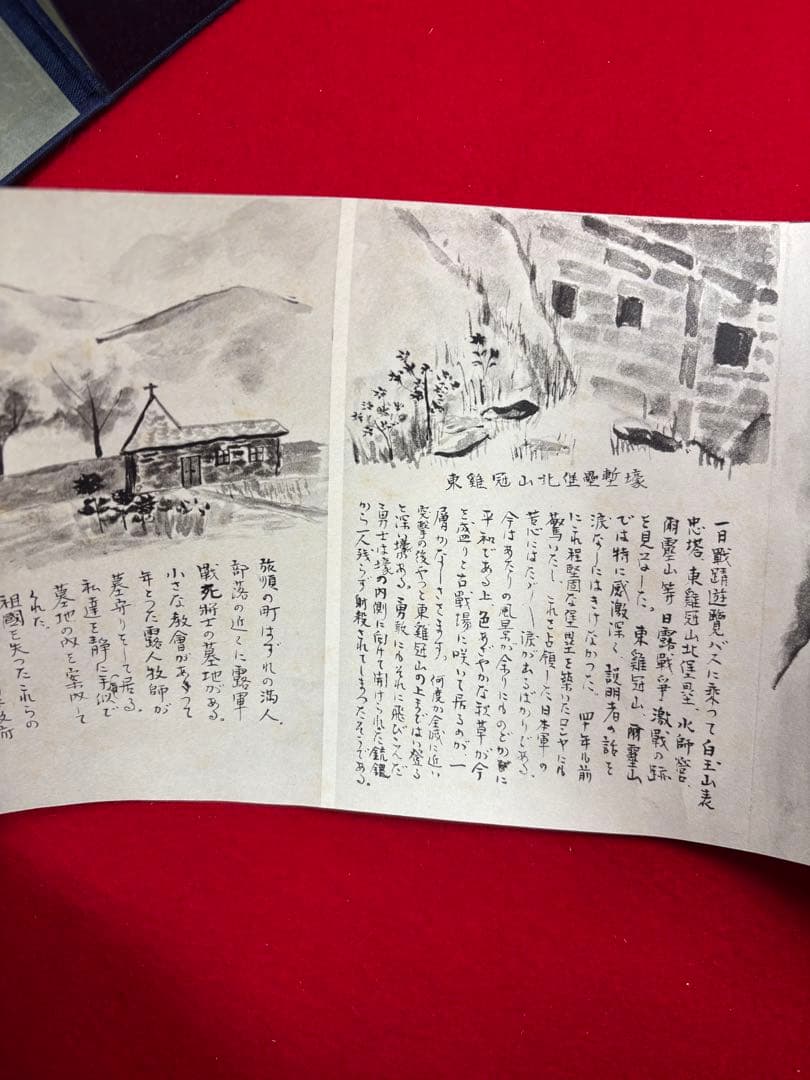 東雞冠山北堡壘塹壕
一日戰蹟遊覽バスに乗つて白玉山表
忠塔、東雞冠山北堡壘、水師營、
爾靈山等、日露戰爭激戰の跡
を見ました。東雞冠山、爾靈山
では特に感激深く、説明者の話を
涙なしにはきけなかつた。四十年も前
にこれ程堅固な堡壘を築いたロシヤにも
驚いたし、これを占領した日本軍の
苦心にはたゞ〳〵涙があるばかりである。
今はあたりの風景が余りにものどかに
平和である上、色あざやかな秋草が今
を盛りと古戰場に咲いて居るのが一
層かなしさをます。何度か全滅に近い
突撃の後やつと東雞冠山の上まではい登る
と深い壕がある。勇敢にもそれに飛びこんだ
勇士は壕の内側に向けて開けられた銃鑵
から一人残らず射殺されてしまつたそうである。
旅順の町はずれの満人
部落の近くに露軍
戰死将士の墓地がある。
小さな教會があつて
年とつた露人牧師が
墓守りをして居る。
私達を靜に手似で
墓地の内を案内して
くれた。
祖國を失つたこれらの